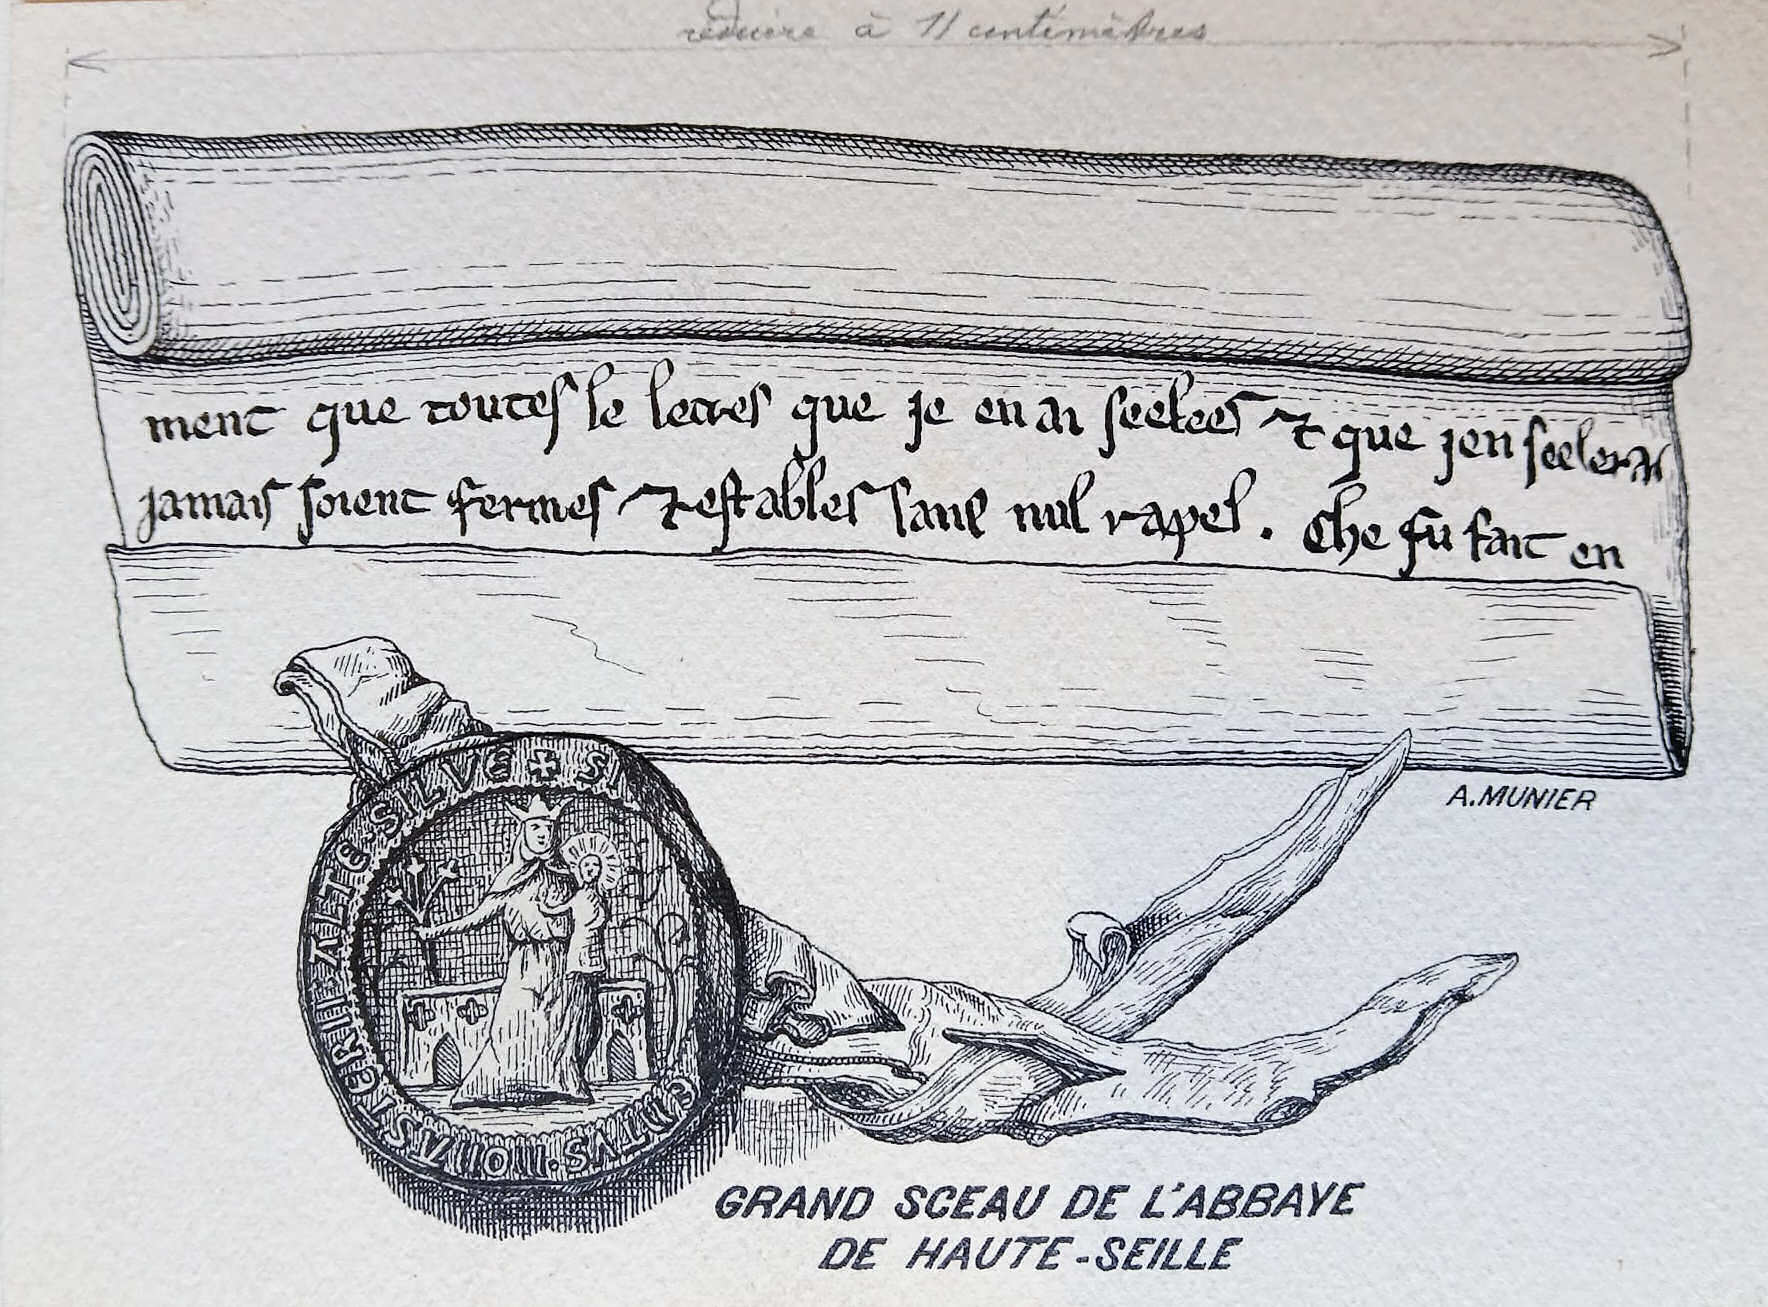 réduire à 11 centimètres
ment que toutes le lectres que je en ai seelees ⁊ que jen seelerai
jamais soient fermes ⁊ estables sans nul rapel. Che fu fait en
A. MUNIER
✠ SI
ENTVS · MONASTERII ALTE · SILVE
GRAND SCEAU DE L'ABBAYE
DE HAUTE-SEILLE